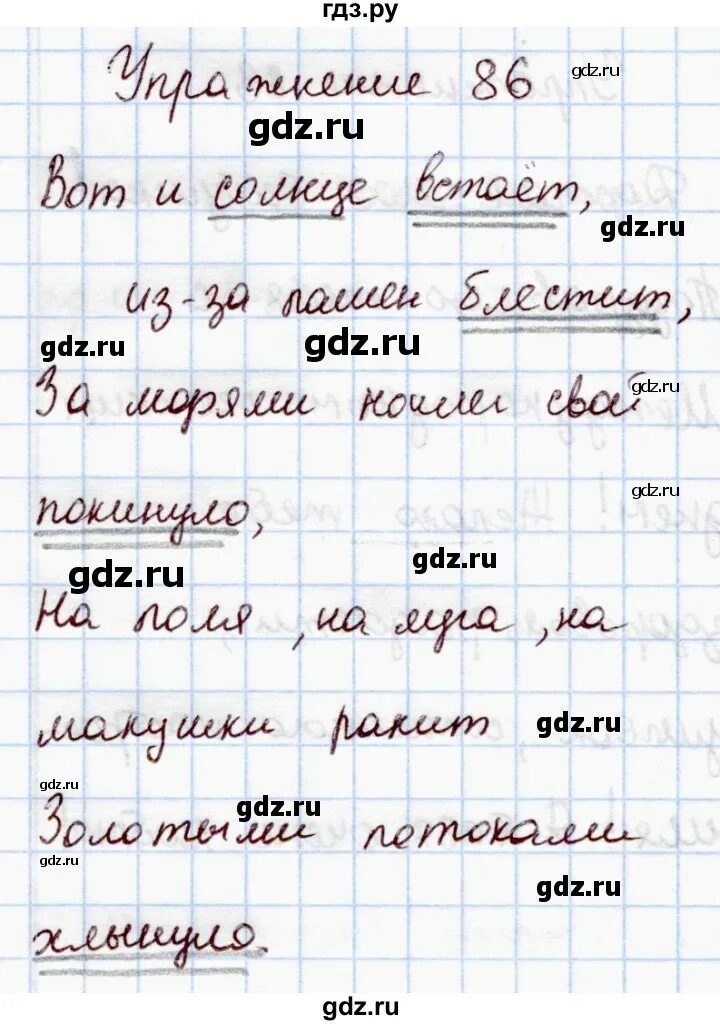 гдз.ру
Упражнение 86
gdz.ru
gdz.ru
Вот и солнце встаёт,
gdz.ru
из-за пашен блестит,
gdz.ru
gdz.ru
За морями ночлег свой
gdz.ru
покинуло,
gdz.ru
gdz.ru
gdz.ru
На поля, на луга, на
макушки ракит
gdz.ru
gdz.ru
gdz.ru
Золотыми потоками
gdz.ru
gdz.ru
хлынуло.
gdz.ru